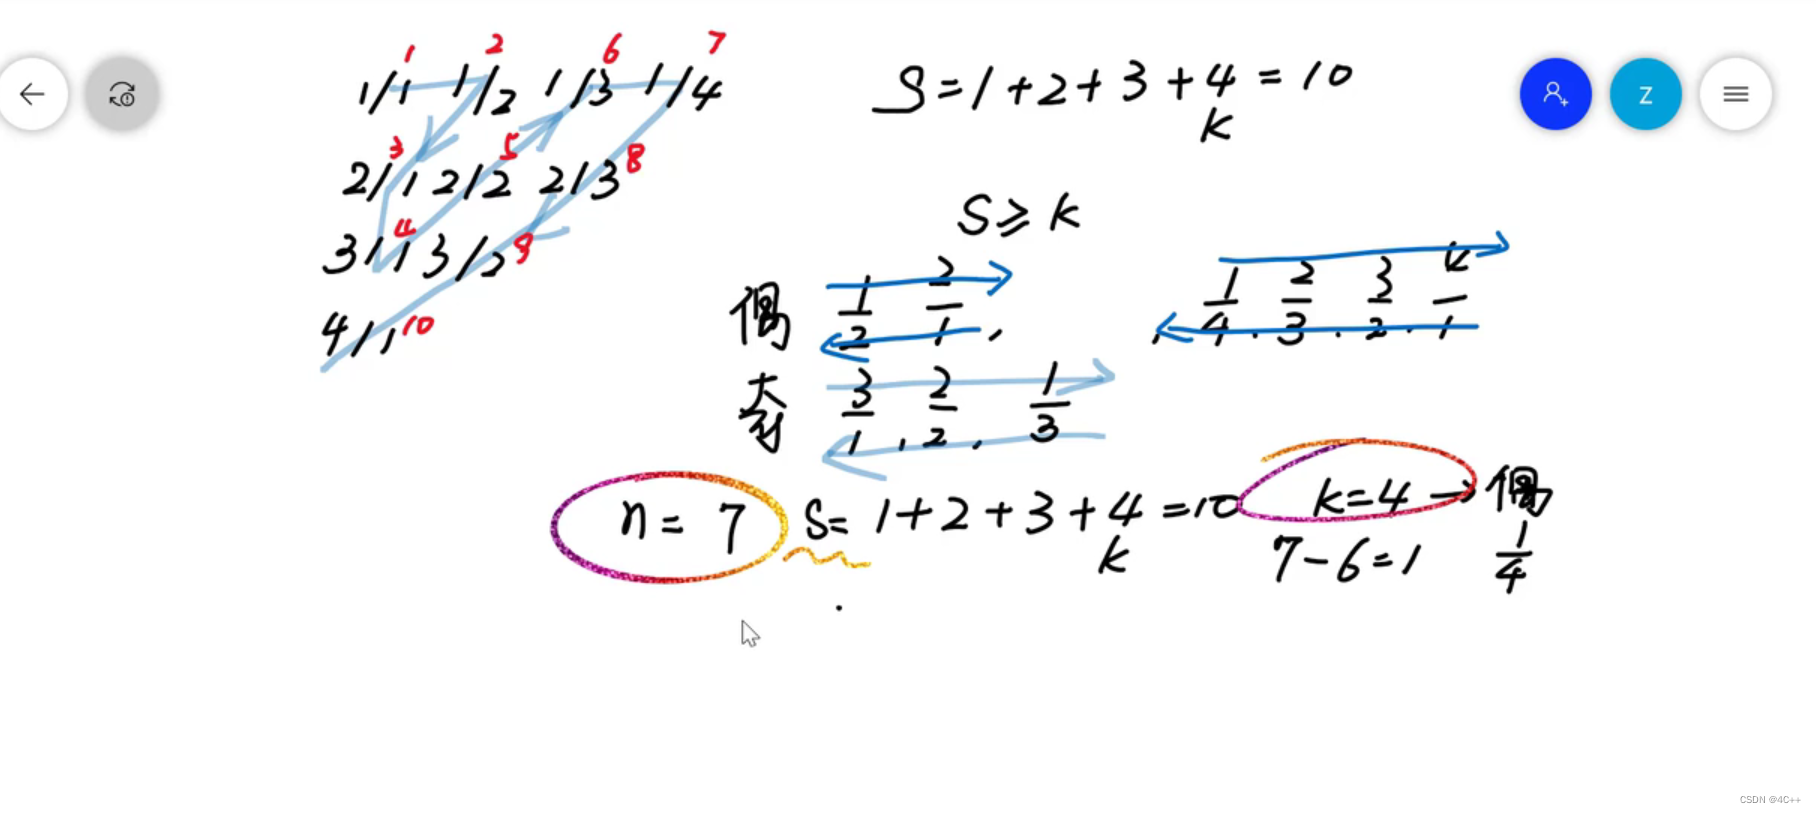 1 2 6 7
1/1 1/2 1/3 1/4
S=1+2+3+4=10
k
Z
3 5 8
2/1 2/2 2/3
S≥k
4 9
3/1 3/2
偶 1/2 2/1,
, 1/4 . 2/3 . 3/2 . 4/1
10
4/1
奇 3/1, 2/2, 1/3
n=7 S=1+2+3+4=10 k=4→偶
k
7-6=1 1/4
CSDN @4C++